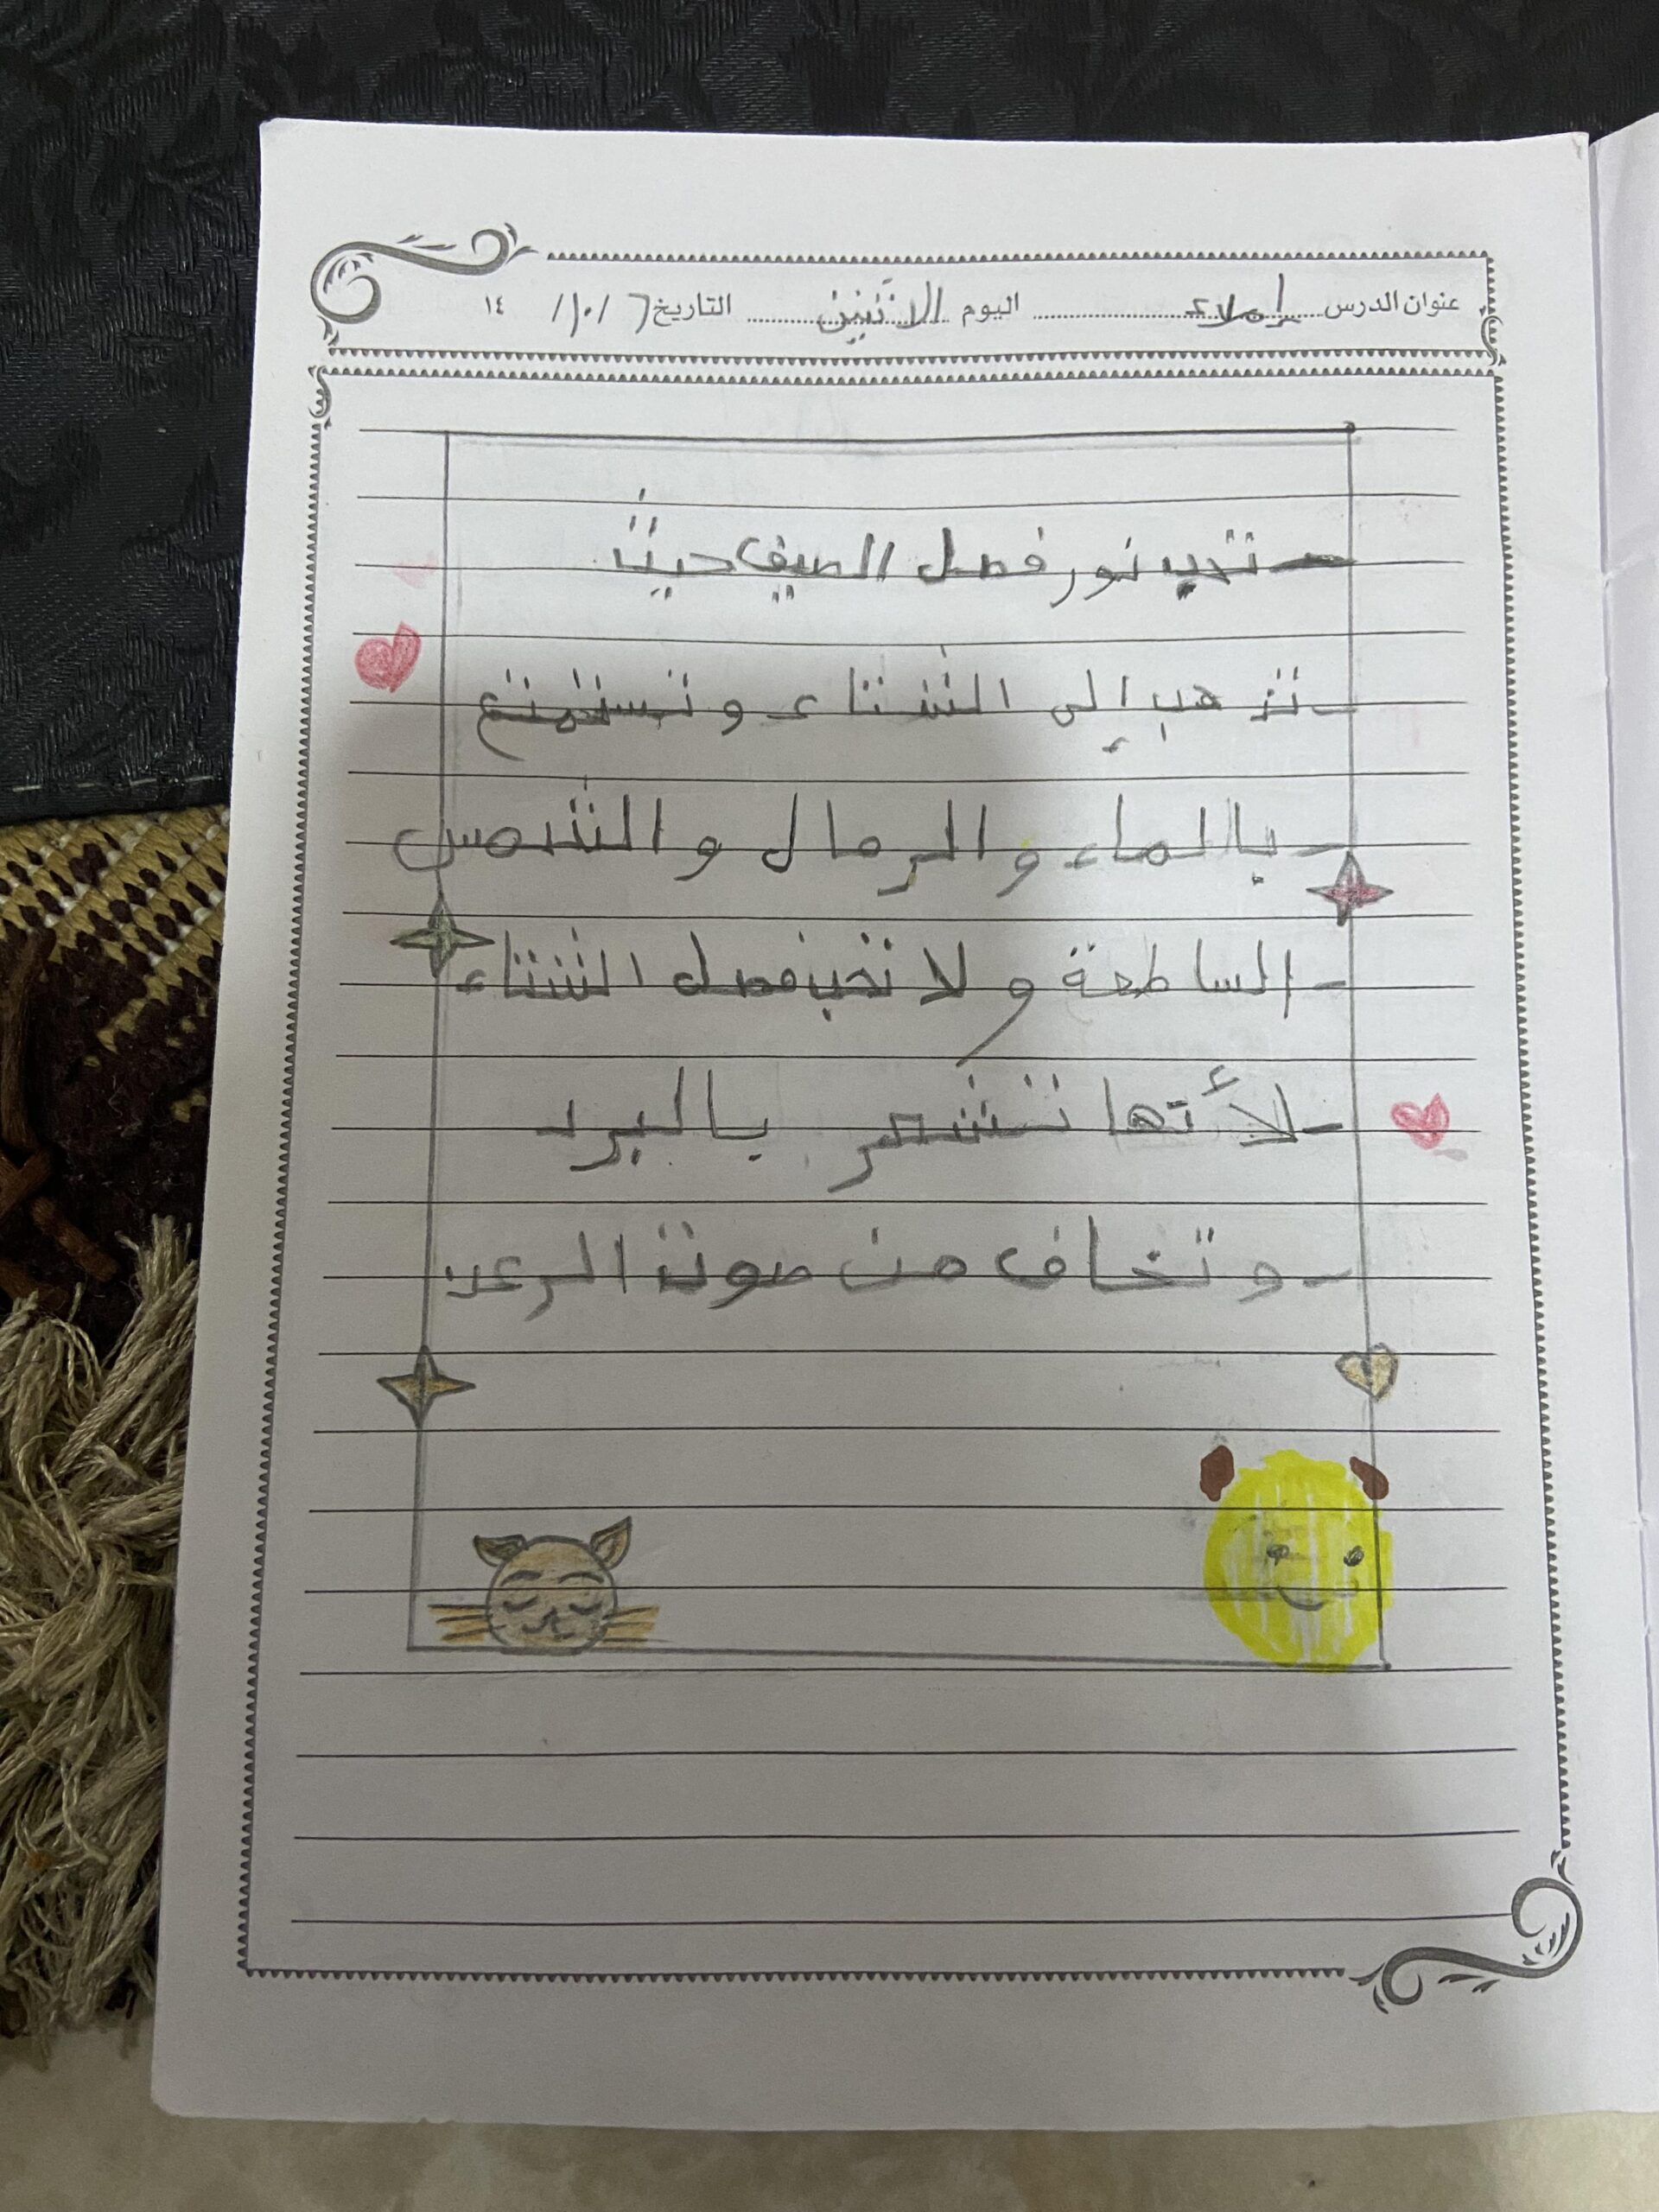 عنوان الدرس إملاء اليوم الاثنين التاريخ ٦ / ١٠ / ١٤
- تحب نور فصل الصيف حيث
- تذهب إلى الشتاء و تستمتع
- بالماء و الرمال و الشمس
- الساطعة و لا تحب فصل الشتاء
- لأنها تشعر بالبرد
- و تخاف من صوت الرعد